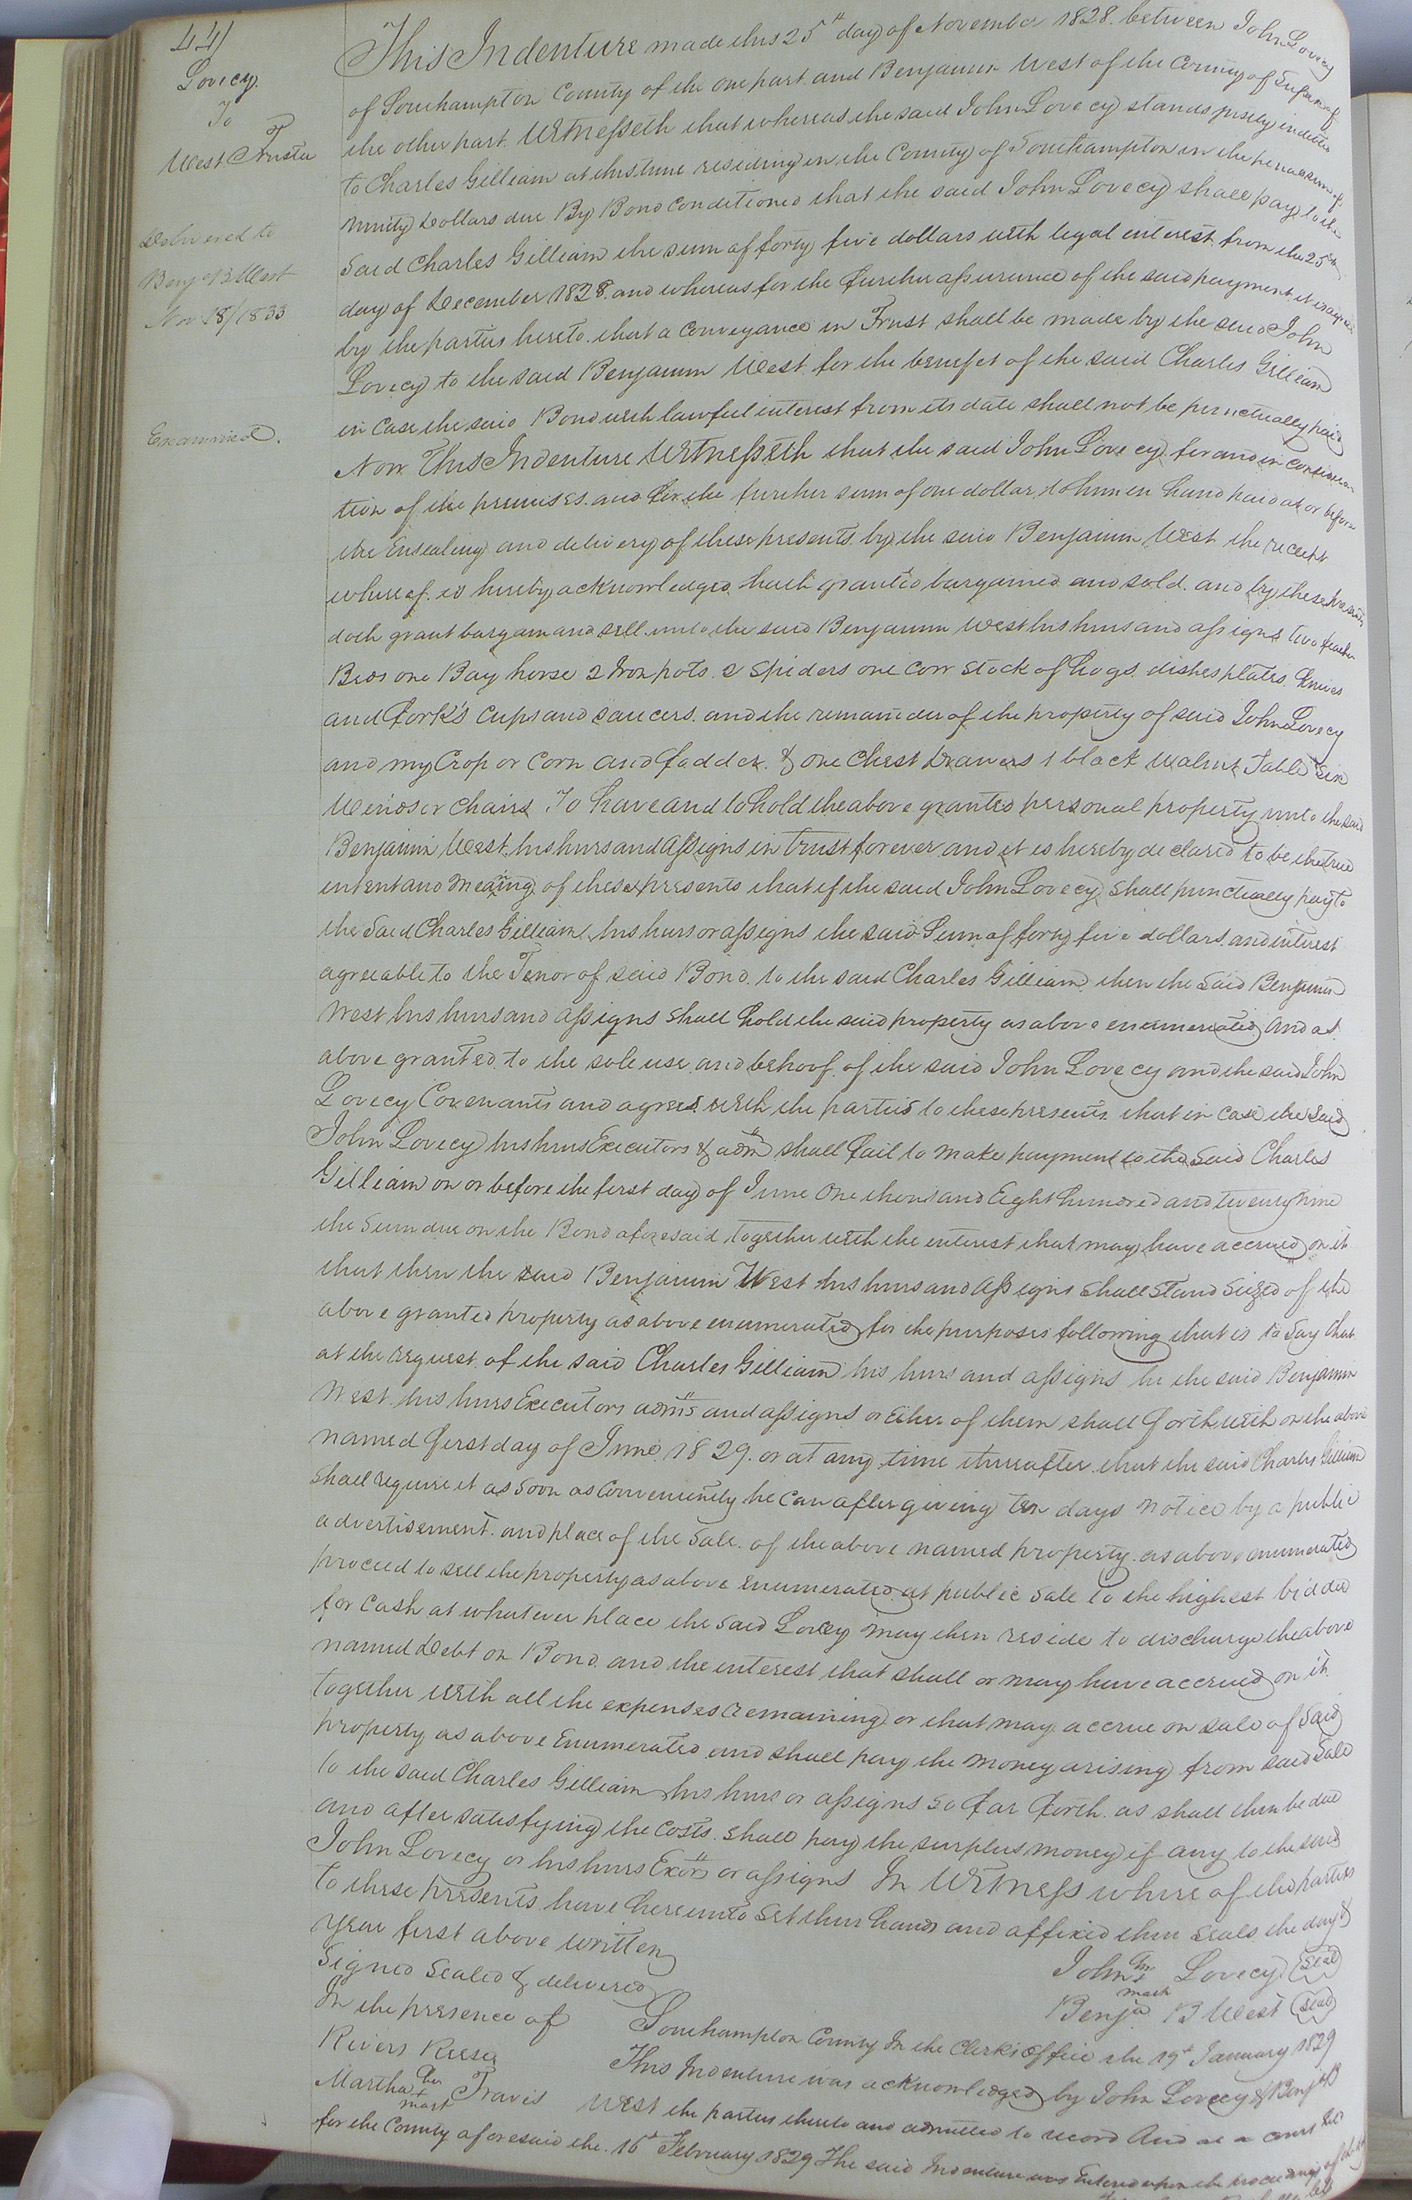 441
Lovecy
To
West Trustee
Delivered to
Benj B West
Nov 18/1833
Examined.
This Indenture made this 25th day of November 1828. between John Lovecy
of Southampton County of the one part and Benjamin West of the County of
the other part. Witnesseth that whereas the said John Lovecy stands justly indebted
to Charles Gilliam at this time residing in the County of Southampton in the penal sum of
ninety Dollars due By Bond conditioned that the said John Lovecy shall pay to the
said Charles Gilliam the sum of forty five dollars with legal interest from the 25th
day of December 1828. and whereas for the further assurance of the said payment it is agreed
by the parties hereto. that a Conveyance in Trust shall be made by the said John
Lovecy to the said Benjamin West for the benefit of the said Charles Gilliam
in case the said Bond with lawful interest from its date shall not be punctually paid
Now This Indenture Witnesseth that the said John Lovecy for and in considera
tion of the premises. and for the further sum of one dollar to him in hand paid at or before
the Ensealing and delivery of these presents by the said Benjamin West the receipt
whereof is hereby acknowledged hath granted bargained and sold. and by these presents
doth grant bargain and sell unto the said Benjamin West his heirs and assigns two feather
Beds one Bay horse 2 Iron pots. 2 Spiders one Cow Stock of hogs. dishes plates. knives
and fork's Cups and saucers. and the remainder of the property of said John Lovecy
and my Crop or Corn and fodder. & one Chest Drawers 1 black walnut Table Six
Windsor Chairs To have and to hold the above granted personal property unto the said
Benjamin West his heirs and assigns in trust forever and it is hereby declared to be the true
intent and meaing of these presents that if the said John Lovecy shall punctually pay to
the Said Charles Gilliam his heirs or assigns the said Sum of forty five dollars and interest
agreeable to the Tenor of said Bond. to the said Charles Gilliam. then the Said Benjamin
West his heirs and assigns shall hold the said property as above enumerated and as
above granted. to the sole use and behoof of the said John Lovecy and the said John
Lovecy Covenants and agrees with the parties to these presents. that in case the said
John Lovecy his heirs Executors & admrs shall fail to make payment to the said Charles
Gilliam on or before the first day of June One thousand Eight hundred and twenty nine
the Sum due on the Bond aforesaid together with the interest that may have accrued on it
that then the said Benjamin West his heirs and assigns shall stand Seized of the
above granted property as above enumerated for the purposes following that is to say that
at the request. of the said Charles Gilliam his heirs and assigns he the said Benjamin
West his heirs Executors admrs and assigns or either of them shall forthwith on the above
named first day of June 1829. or at any time thereafter that the said Charles Gilliam
shall require it as soon as Conveniently he can after giving ten days notice by a public
advertisement. and place of the Sale. of the above named property. as above enumerated
proceed to sell the property as above enumerated at public Sale to the highest bidder
for Cash at whatever place the said Lovecy may then reside to discharge the above
named Debt on Bond and the interest that shall or may have accrued on it.
together with all the expenses remaining or that may accrue on sale of Said
property as above Enumerated and shall pay the money arising from said Sale
to the said Charles Gilliam his heirs or assigns so far forth. as shall then be due
and after satisfying the Costs. shall pay the surplus money if any to the said
John Lovecy or his heirs Exors or assigns In Witness where of the parties
to these presents have hereunto Set their hands and affixed their seals the day &
year first above written
Signed Sealed & delivered
In the presence of
Rivers Reese
Martha her + mark Travis
John his + mark Lovecy (Seal)
Benja B West (Seal)
Southampton County In the Clerk's Office the 19th January 1829
This Indenture was acknowledged by John Lovecy & Benj B
West the parties thereto and admitted to record And at a court
for the County aforesaid the 16th February 1829 The said Indenture was Entered upon the proceedings of